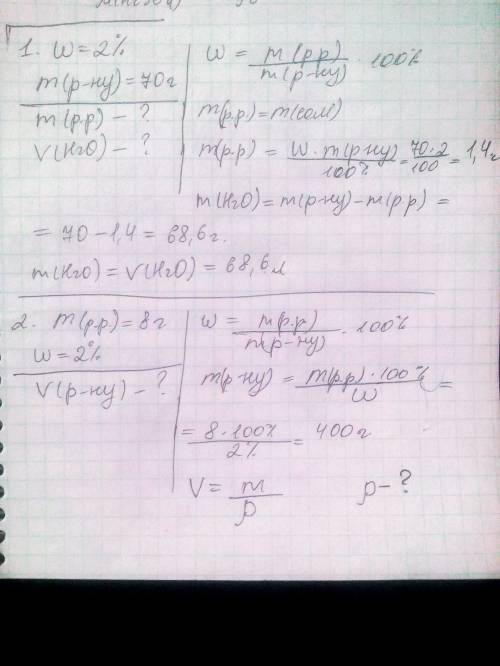 1. W = 2%
m(р-ну) = 70г
m(р.р) - ?
V(H2O) - ?
W = m(р.р) / m(р-ну) · 100%
m(р.р.) = m(сол)
m(р.р) = W · m(р-ну) / 100% = 70 · 2 / 100 = 1,4г
m(H2O) = m(р-ну) - m(р.р) =
= 70 - 1,4 = 68,6г.
m(H2O) = V(H2O) = 68,6 л
2. m(р.р.) = 8г
W = 2%
V(р-ну) - ?
W = m(р.р) / m(р-ну) · 100%
m(р-ну) = m(р.р) · 100% / W =
= 8 · 100% / 2% = 400г
V = m / p p - ?